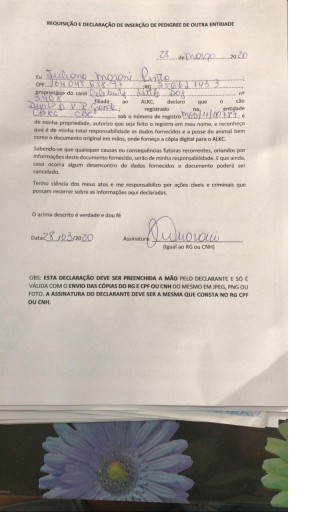 REQUISIÇÃO E DECLARAÇÃO DE INSERÇÃO DE PEDIGREE DE OUTRA ENTIDADE
28 de março 2020
Eu Juliana Morani Pinto
CPF RG
proprietário do canil nº
filiado ao ALKC, declaro que o cão
registrado na entidade
CBKC sob o número de registro e
de minha propriedade, autorizo que seja feito o registro em meu nome, e reconheço
que é de minha total responsabilidade os dados fornecidos e a posse do animal bem
como o documento original em mãos, onde forneço a cópia digital para o ALKC.
Sabendo-se que quaisquer causas ou consequências futuras recorrentes, oriundos por
informações deste documento fornecido, serão de minha responsabilidade. E que ainda,
caso ocorra algum desencontro dos dados fornecidos o documento poderá ser
cancelado.
Tenho ciência dos meus atos e me responsabilizo por ações cíveis e criminais que
possam recorrer sobre as informações aqui declaradas.
O acima descrito é verdade e dou fé
Data: 28/03/2020 Assinatura
(Igual ao RG ou CNH)
OBS: ESTA DECLARAÇÃO DEVE SER PREENCHIDA A MÃO PELO DECLARANTE E SÓ É
VÁLIDA COM O ENVIO DAS CÓPIAS DO RG E CPF OU CNH DO MESMO EM JPEG, PNG OU
FOTO. A ASSINATURA DO DECLARANTE DEVE SER A MESMA QUE CONSTA NO RG CPF
OU CNH.